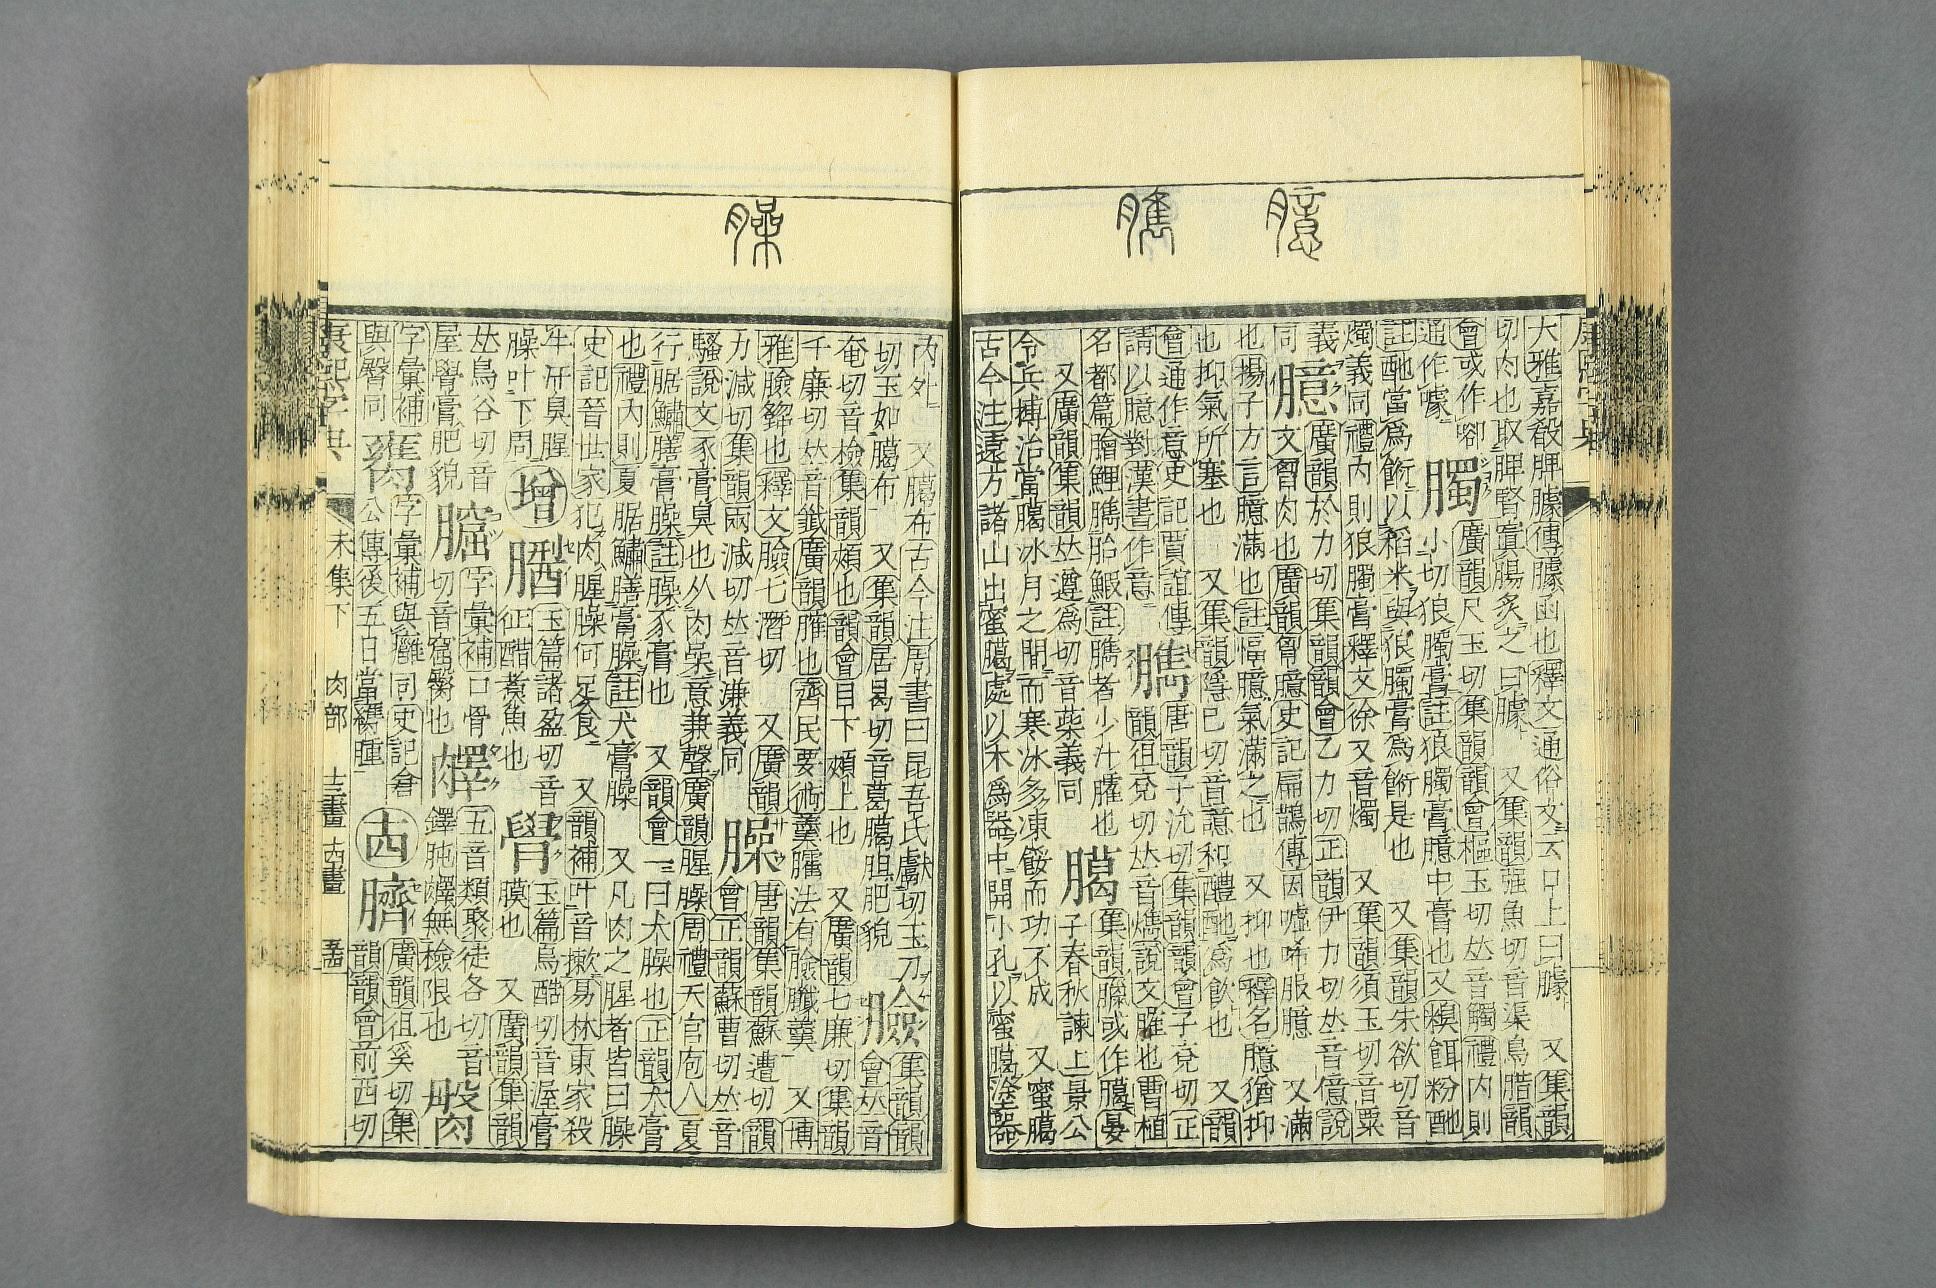 臆
臇
臊
康熙字典
大雅嘉殽脾臄傳臄函也釋文通俗文云口上曰臄 又集韻
切肉也取脾腎實腸炙之曰臄 又集韻强魚切音渠鳥腊韻
會或作
通作噱
臅
廣韻尺玉切集韻韻會樞玉切𠀤音觸禮內則
小切狼臅膏註狼臅膏臆中膏也又糗餌粉酏
註酏當爲䬳以稻米與狼臅膏爲䬳是也 又集韻朱欲切音
燭義同禮內則狼臅膏釋文徐又音燭 又集韻須玉切音粟
義
同
臆
廣韻於力切集韻韻會乙力切正韻伊力切𠀤音億說
文胷肉也廣韻胷臆史記扁鵲傳因噓唏服臆 又滿
也揚子方言臆滿也註愊臆氣滿之也 又抑也釋名臆猶抑
也抑氣所塞也 又集韻隱已切音譩和醴酏爲飮也 又韻
會通作意史記賈誼傳
請以臆對漢書作意
臇
唐韻子沇切集韻韻會子兗切正
韻徂兗切𠀤音㒞說文臛也曹植
名都篇膾鯉臇胎鰕註臇者少汁臛也
又廣韻集韻𠀤遵爲切音㭰義同
臈
集韻臘或作臈晏
子春秋諫上景公
令兵摶治當臈冰月之閒而寒冰多凍餒而功不成 又蜜臈
古今注遠方諸山出蜜臈處以木爲器中開小孔以蜜臈塗器
內外 又臈布古今注周書曰昆吾氏獻切玉刀
切玉如臈布 又集韻居曷切音葛臈脭肥貌
臉
集韻韻
會𠀤音
奄切音檢集韻頰也韻會目下頰上也 又廣韻七廉切集韻
千廉切𠀤音籤廣韻臛也齊民要術羹臛法有臉䐶羹 又博
雅臉䤅也釋文臉七潛切 又廣韻
力減切集韻兩減切𠀤音 義同
臊
唐韻集韻蘇遭切韻
會正韻蘇曹切𠀤音
騷說文豕膏臭也从肉喿意兼聲廣韻腥臊周禮天官庖人夏
行腒鱐膳膏臊註臊豕膏也 又韻會一曰犬臊也正韻犬膏
也禮內則夏腒鱐膳膏臊註犬膏臊 又凡肉之腥者皆曰臊
史記晉世家犯肉腥臊何足食 又韻補叶音擻易林東家殺
牛汙臭腥
臊叶下周
增
玉篇諸盈切音
征醋煑魚也
觷
玉篇烏酷切音渥膏
膜也 又廣韻集韻
𠀤烏谷切音
屋觷膏肥貌
字彙補口骨
切音窟臀也
五音類聚徒各切音
鐸肫 無檢限也
字彙補
與臀同
字彙補與癰同史記倉
公傳後五日當 腫
古
臍
廣韻徂奚切集
韻韻會前西切
康熙字典 未集下 肉部 十三畫 十四畫